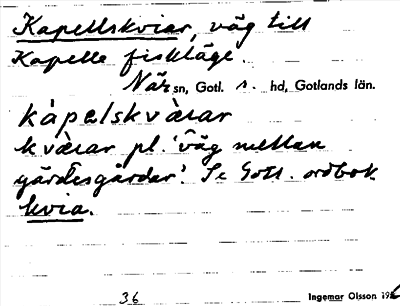 Kapellskviar, väg till
Kapelle fiskläge.
När sn, Gotl. s. hd, Gotlands län.
kàpəlskvàrar
kvàrar pl. 'väg mellan
gärdesgårdar'. Se Gotl. ordbok
kvia.
36 Ingemar Olsson 19